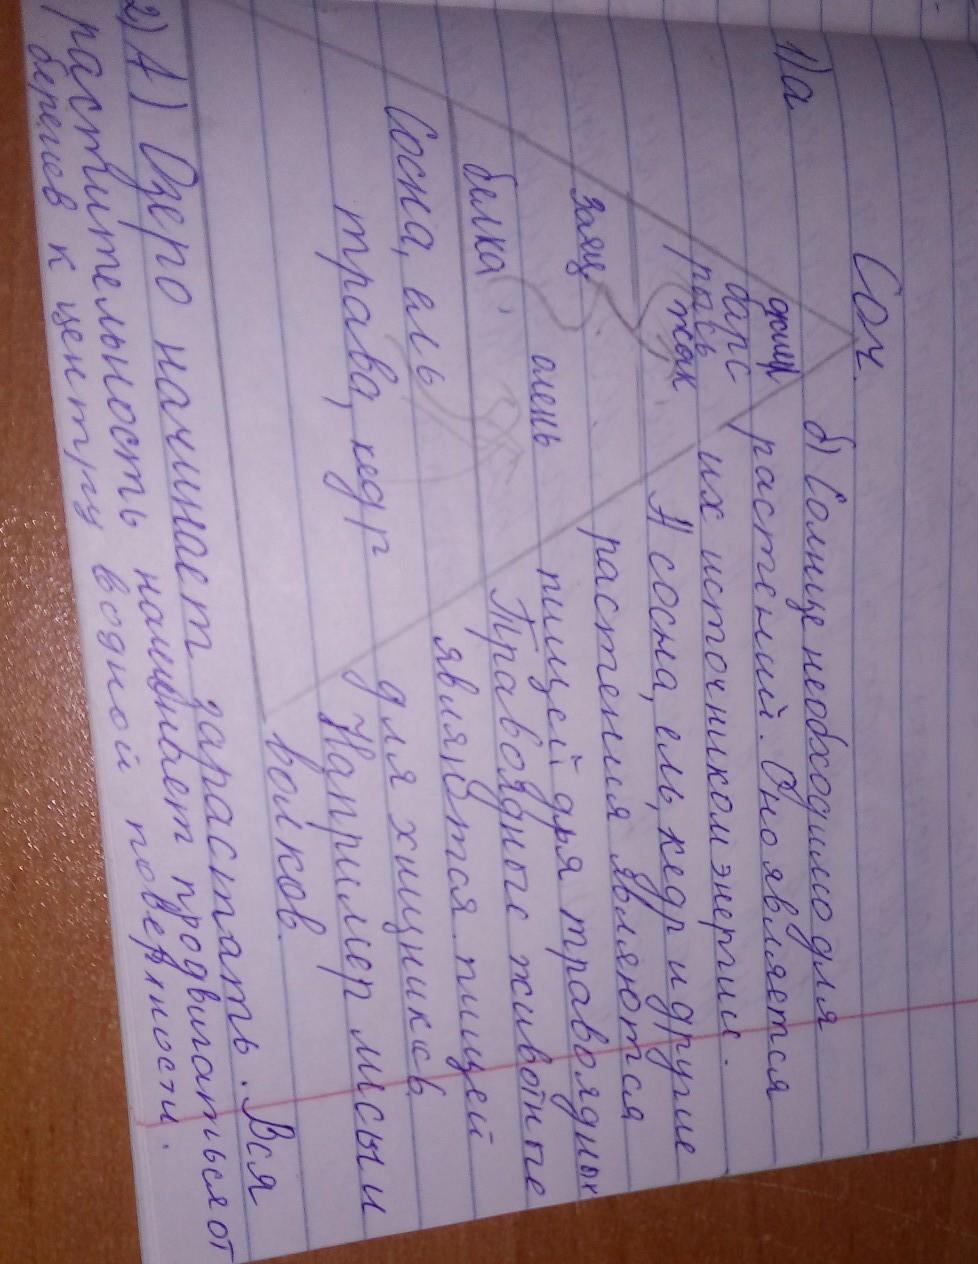 Соч.
1) а
б) Солнце необходимо для
растений. Оно является
их источником энергии.
А сосна, ель, кедр и другие
растения являются
пищей для травоядных
Травоядные животные
являются пищей
для хищников.
Например лисы и
волков.
барс
рысь
заяц
олень
белка
Сосна, ель
трава, кедр
2) 1) Озеро начинает зарастать. Вся
растительность начинает продвигаться от
берегов к центру водной поверхности.